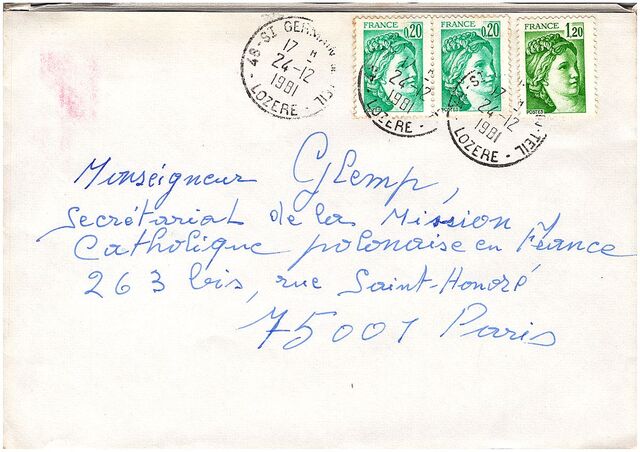 48-ST GERMAIN-DU-TEIL
17 H
24-12
1981
LOZERE
FRANCE
0,20
FRANCE
0,20
FRANCE
1,20
POSTES
24-12
1981
LOZERE
24-12
1981
LOZERE -
Monseigneur Glemp,
secrétariat de la Mission
Catholique polonaise en France
263 bis, rue Saint-Honoré
75001 Paris